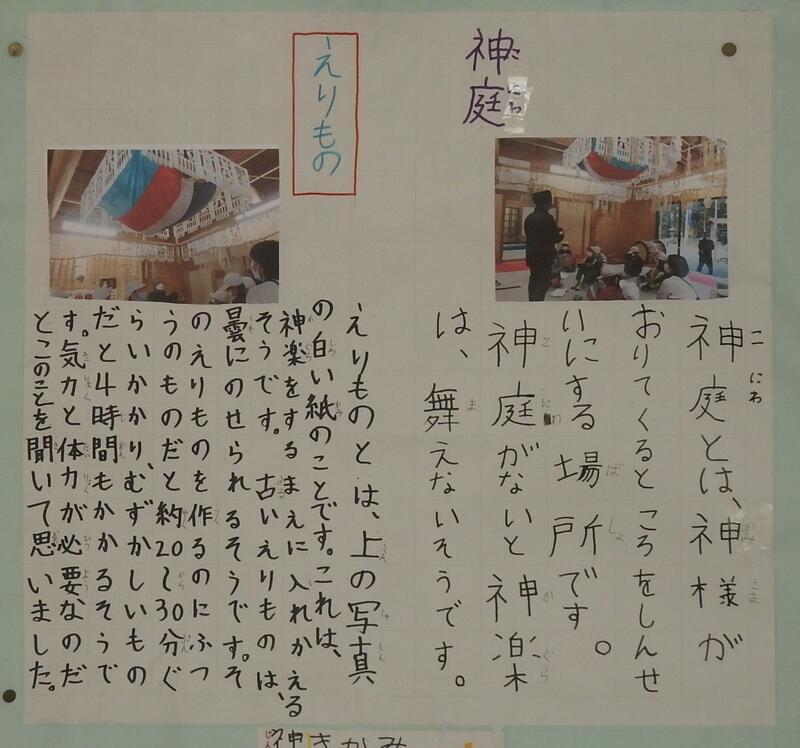 神庭
神庭とは、神様が
おりてくるところをしんせ
いにする場所です。
神庭がないと神楽
は、舞えないそうです。
えりもの
えりものとは、上の写真
の白い紙のことです。これは、
神楽をするまえに入れかえる
そうです。古いえりものは、
曇にのせられるそうです。そ
のえりものを作るのにふつ
うのものだと約20〜30分ぐ
らいかかり、むずかしいもの
だと4時間もかかるそうで
す。気力と体力が必要なのだ
とこのことを聞いて思いました。